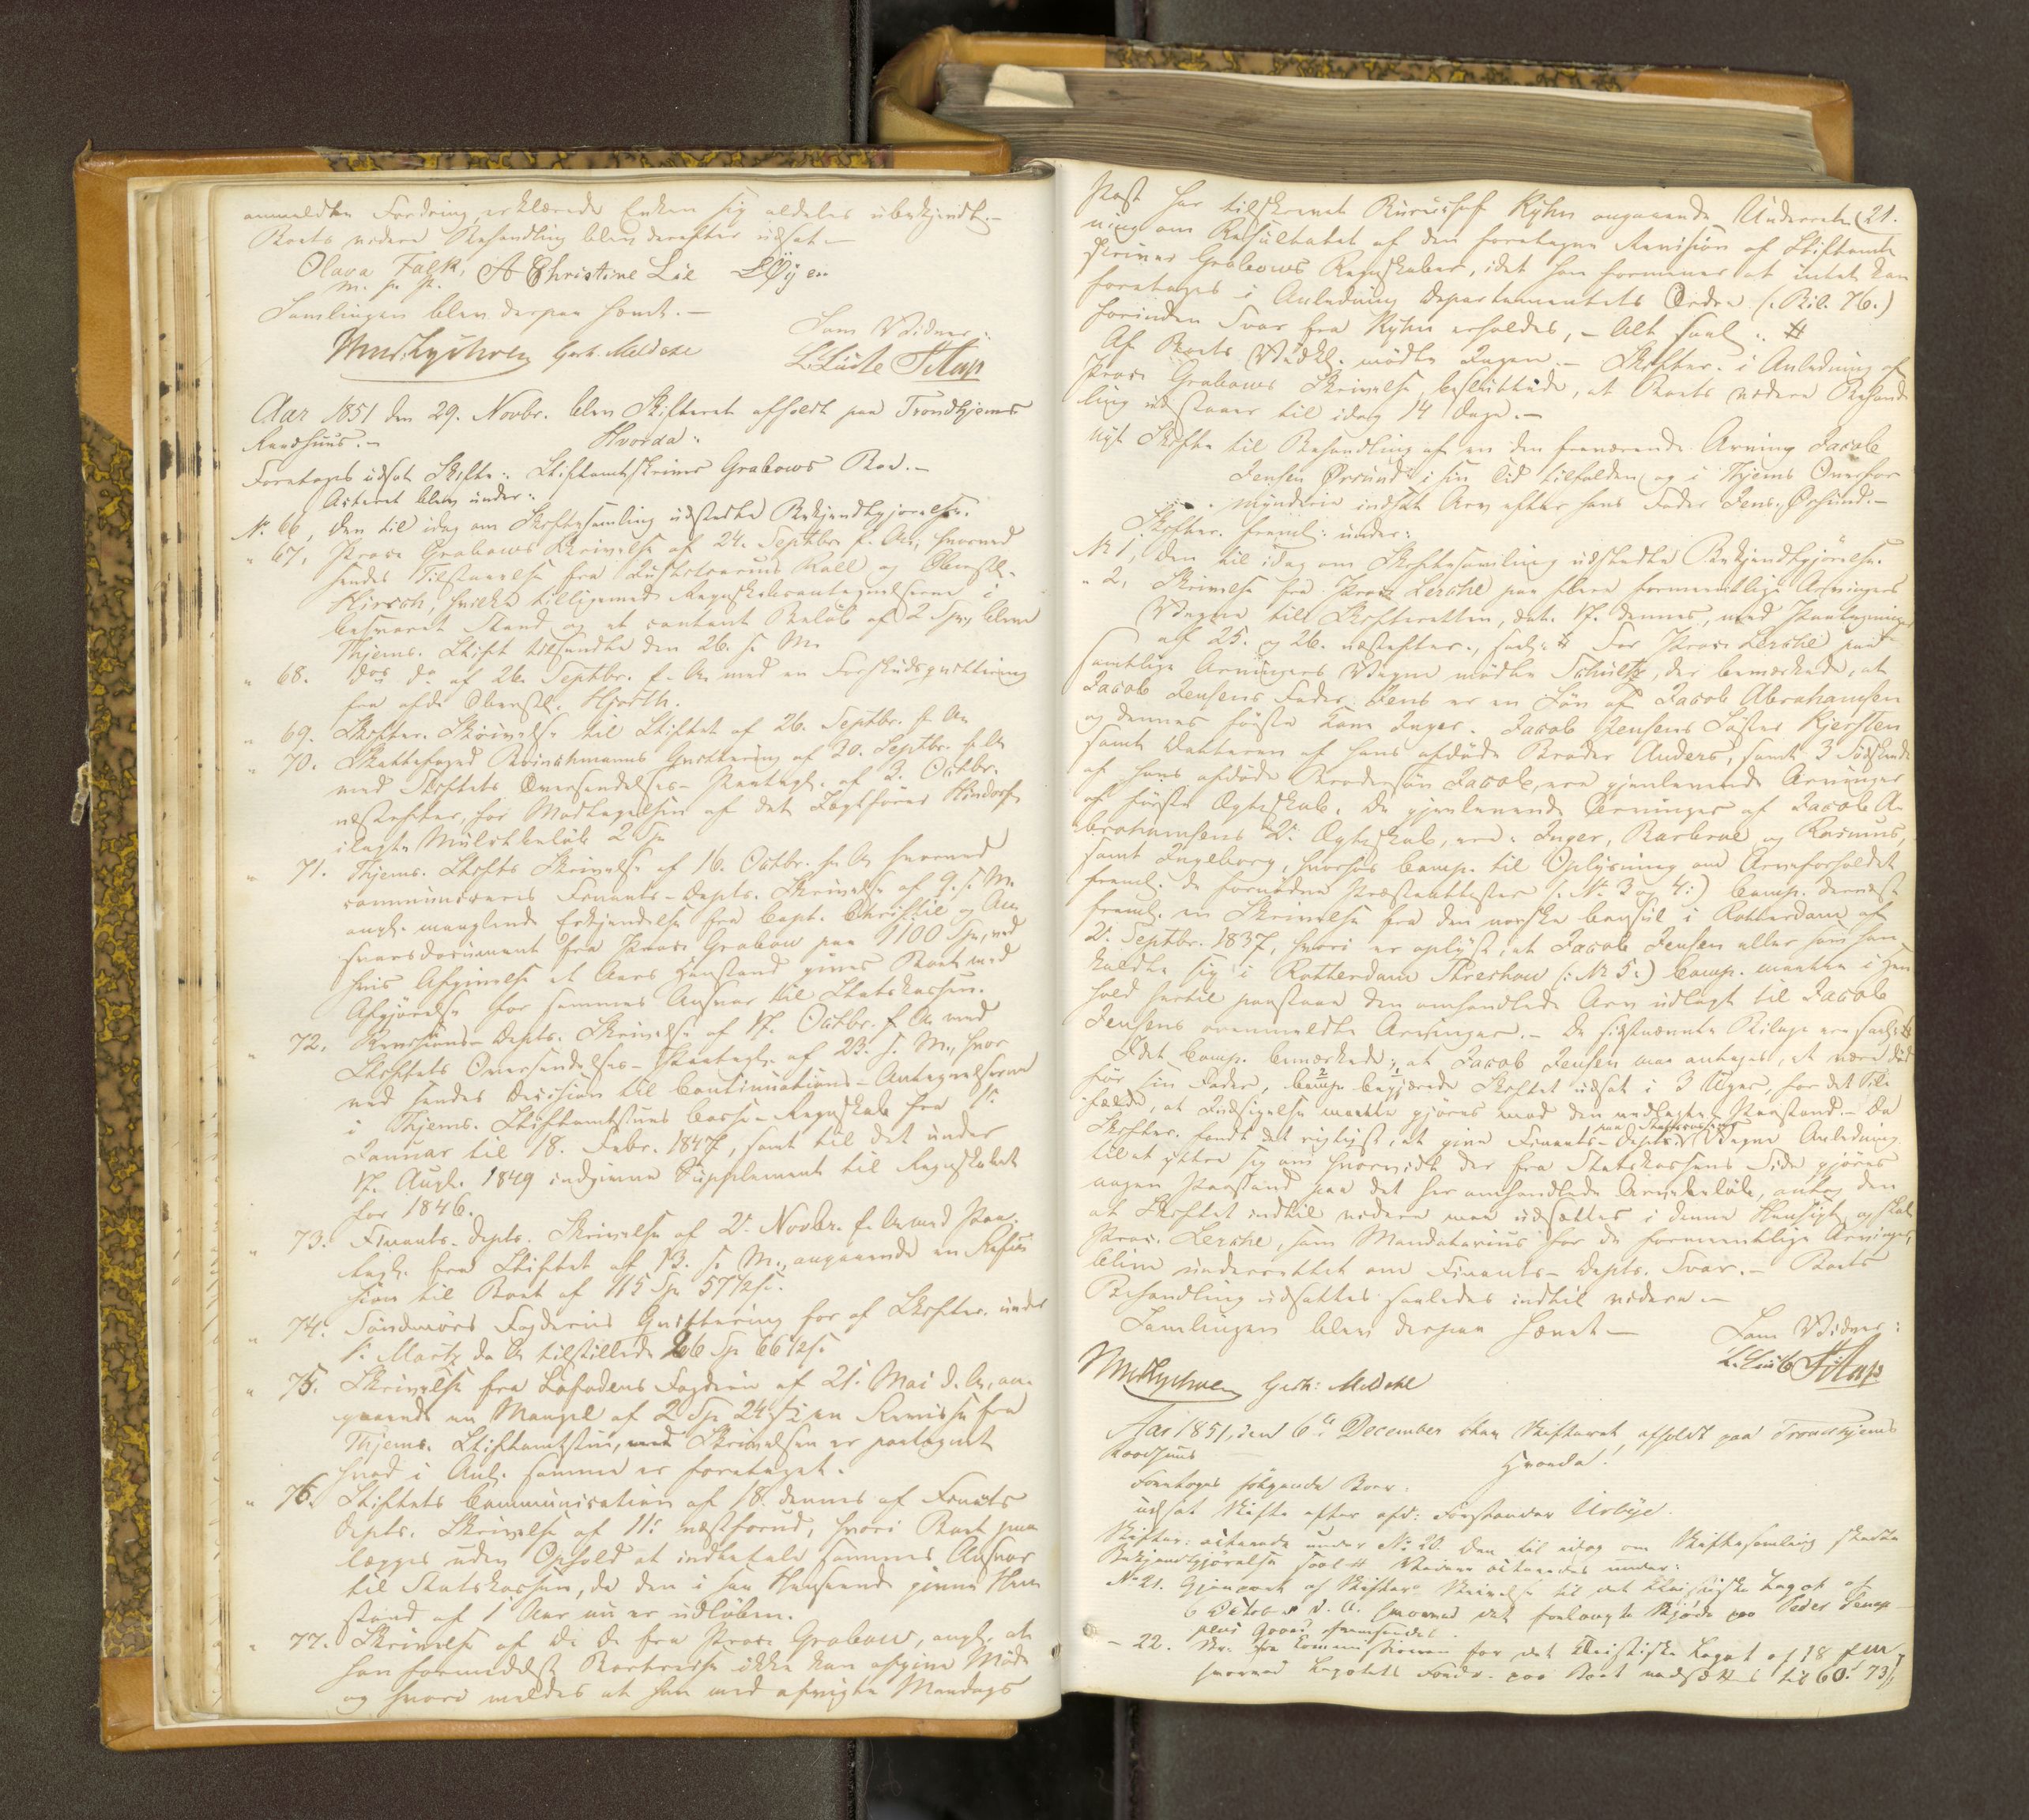 anmeldte Fordring, erklærede Enken sig aldeles ubekjendt.-
Boets videre Behandling blev derefter udsat.-
Olava Falk, A Christine Lie
m. p. P.
Samlingen blev derpaa hævet.-
Som Vidner:
Gerh. Meldahl
Aar 1851 den 29. Novbr. blev Skifteret afholdt paa Trondhjems
Raadhuus.- Hvorda:
Foretoges udsat Skifte: Stiftamtskriver Grabows Bo.-
Acteret blev under:
No. 66, den til idag om Skiftesamling udstedte Bekjendtgjørelse.
" 67, Procr. Grabows Skrivelse af 24. Septbr. f. A., hvorved
sendes Tilstaaelse fra Justitsraad Rall og Oberstl.
Hirsch, hvilke tilligemed Regnskabsantegnelserne i
besvaret Stand og et contant Beløb af 2 Spd, bleve
Thjems. Stift tilsendte den 26. s. M.
" 68. Dos. do. af 26. Septbr. f. A. med en Forskudsqvittering
fra afdr. Oberstl. Hjorth.
" 69. Skifter. Skrivelse til Stiftet af 26. Septbr. f. A.
" 70. Skattefoged Brinchmanns Qvittering af 30. Septbr. f. A.
med Stiftets Oversendelses-Paategn. af 3. Octbr.
næstefter, for Modtagelsen af det Fogtfører Hindorf
ilagte Mulctbeløb 2 Sp.
" 71. Thjems. Stifts Skrivelse af 16. Octbr. f. A. hvorved
communiceres Finants-Depts. Skrivelse af 9. s. M.
angl. manglende Erkjendelse fra Capt. Christie og An-
svarsdocument fra Procr. Grabow paa 1100 Spd, ved
hvis Afgivelse et Aars Henstand gives Boet med
Afgjørelse for sammes Ansvar til Statskassen.
" 72. Revisions-Depts. Skrivelse af 17. Octbr. f. A. med
Stiftets Oversendelses-Paategn. af 23. s. M., hvor-
ved sendes Decision til Continuations-Antegnelserne
i Thjems. Stiftamtstues Casse-Regnskab fra 1.
Januar til 18. Febr. 1847, samt til det under
17. Augt. 1849 indgivne Supplement til Regnskabet
for 1846.
" 73. Finants-Depts. Skrivelse af 2. Novbr. f. A. med Paa-
tegn. fra Stiftet af 13. s. M., angaaende en Refu-
sion til Boet af 115 Sp 57½ s.
" 74. Søndmørs Fogderies Qvittering for af Skifter. under
1. Martz d. A. tilstillede 266 Sp 66½ s.
" 75. Skrivelse fra Lofodens Fogderie af 21. Mai d. A., an-
gaaende en Mangel af 2 Sp 24 s i en Remisse fra
Thjems. Stiftamtstue, ved Skrivelsen er paategnet
hvad i Anl. samme er foretaget.
" 76. Stiftets Communication af 18. dennes af Finants
Depts. Skrivelse af 11. næstforud, hvori Boet paa-
lægges uden Ophold at indbetale sammes Ansvar
til Statskassen, da den i saa Henseende givne Hen-
stand af 1 Aar nu er udløben.
" 77. Skrivelse af D. D. fra Procr. Grabow, angl. at
han formedelst Bortreise ikke kan afgive Møde
og hvori meldes at han med afvigte Mandags
21.
Post har tilskrevet Bureauchef Kyhn angaaende Underret-
ning om Resultatet af den foretagne Revision af Stiftamt-
skriver Grabows Regnskaber, idet han formener at intet kan
foretages i Anledning Departementets Ordre (: Bil. 76.)
forinden Svar fra Kyhn erholdes, - Alt saal.: #
Af Boets Vedk. mødte Ingen.- Skifter. i Anledning af
Procr. Grabows Skrivelse besluttede, at Boets videre Behand-
ling udstaaer til idag 14 Dage.-
Nyt Skifte til Behandling af en den fraværende Arving Jacob
Jensen Ørsund i sin Tid tilfalden og i Thjems Overfor-
mynderie indsat Arv efter hans Fader Jens Ørsund.-
Skifter. freml: under:
No 1, den til idag om Skiftesamling udstedte Bekjendtgjørelse.
" 2, Skrivelse fra Procr. Lerche paa flere formeentlige Arvingers
Vegne till Skifteretten, dat. 17. dennes, med Paategninger
af 25. og 26. næstefter., saal. # For Procr. Lerche paa
samtlige Arvingers Vegne mødte Schultz, der bemærkede, at
Jacob Jensens Fader Jens er en Søn af Jacob Abrahamsen
og dennes første Kone Inger. Jacob Jensens Søster Kjersten
samt Datteren af hans afdøde Broder Anders, samt 3 Sødskende
af hans afdøde Brodersøn Jacob, ere gjenlevende Arvinger
af første Ægteskab. De gjenlevende Arvinger af Jacob A-
brahamsens 2. Ægteskab, ere: Inger, Barbroe og Rasmus,
samt Ingeborg, hvorhos Comp. til Oplysning om Arveforholdet
freml. de fornødne Præsteattester (: No 3 og 4 :) Comp. dernæst
freml. en Skrivelse fra den norske Consul i Rotterdam af
2. Septbr. 1837, hvori er oplyst, at Jacob Jensen eller som han
kaldte sig i Rotterdam Threshow (: No 5 :) Comp. maatte i Hen-
hold hertil paastaae den omhandlede Arv udlagt til Jacob
Jensens ovenmeldte Arvinger.- De sidstnævnte Bilage ere saal. #
Idet Comp. bemærkede, at Jacob Jensen maa antages, at være død
før sin Fader, Comp. begjærede Skiftet udsat i 3 Uger, for det Til-
fælde, at Indsigelse maatte gjøres mod den nedlagte Paastand.- Da
Skifter. fandt det rigtigst, at give Finants-Depts. Vegne Anledning
til at yttre sig om hvorvidt der fra Statskassens Side gjøres
nogen Paastand paa det her omhandlede Arvebeløb, antog den
at Skiftet indtil videre maa udsættes i denne Hensigt og skal
Procr. Lerche, som Mandatarius for de formeentlige Arvinger,
blive underrettet om Finants-Depts. Svar.- Boets
Behandling udsattes saaledes indtil videre.-
Samlingen blev derpaa hævet.-
Som Vidner:
Gerh: Meldahl
Aar 1851, den 6te December blev Skifteret afholdt paa Trondhjems
Raadhuus
Hvorda!
Foretoges følgende Boer.
udsat Skifte efter afd: Forstander Ursbye.
Skifter: acterede under No 20. den til idag om Skiftesamling skedte
Bekjendtgjørelse saal # Videre acteredes under:
No 21. Gjenpart af Skifter. Skrivelse til det Kleistiske Legat af
6 October d. A. hvorved det forlangte Skjøde paa Peder
Gaard fremsendes.
- 22. Skr. fra Commissionen for det Kleistiske Legat af 18 f. M.
hvorved Legatets Fordr. paa Boet nedsættes til 60. 73 s.